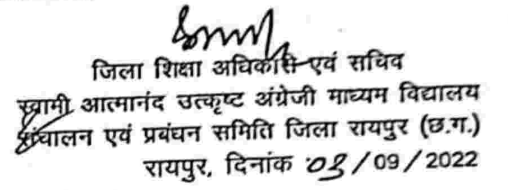 जिला शिक्षा अधिकारी एवं सचिव
स्वामी आत्मानंद उत्कृष्ट अंग्रेजी माध्यम विद्यालय
संचालन एवं प्रबंधन समिति जिला रायपुर (छ.ग.)
रायपुर, दिनांक 03/09/2022